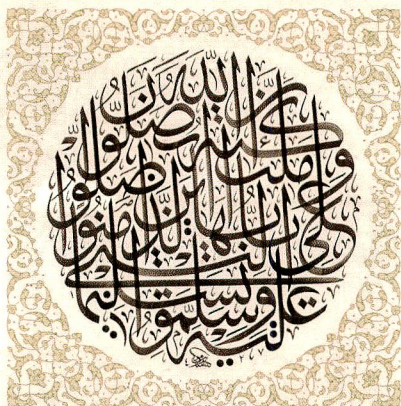 إن الله وملئكته يصلون على النبي يأيها الذين ءامنوا صلوا عليه وسلموا تسليما